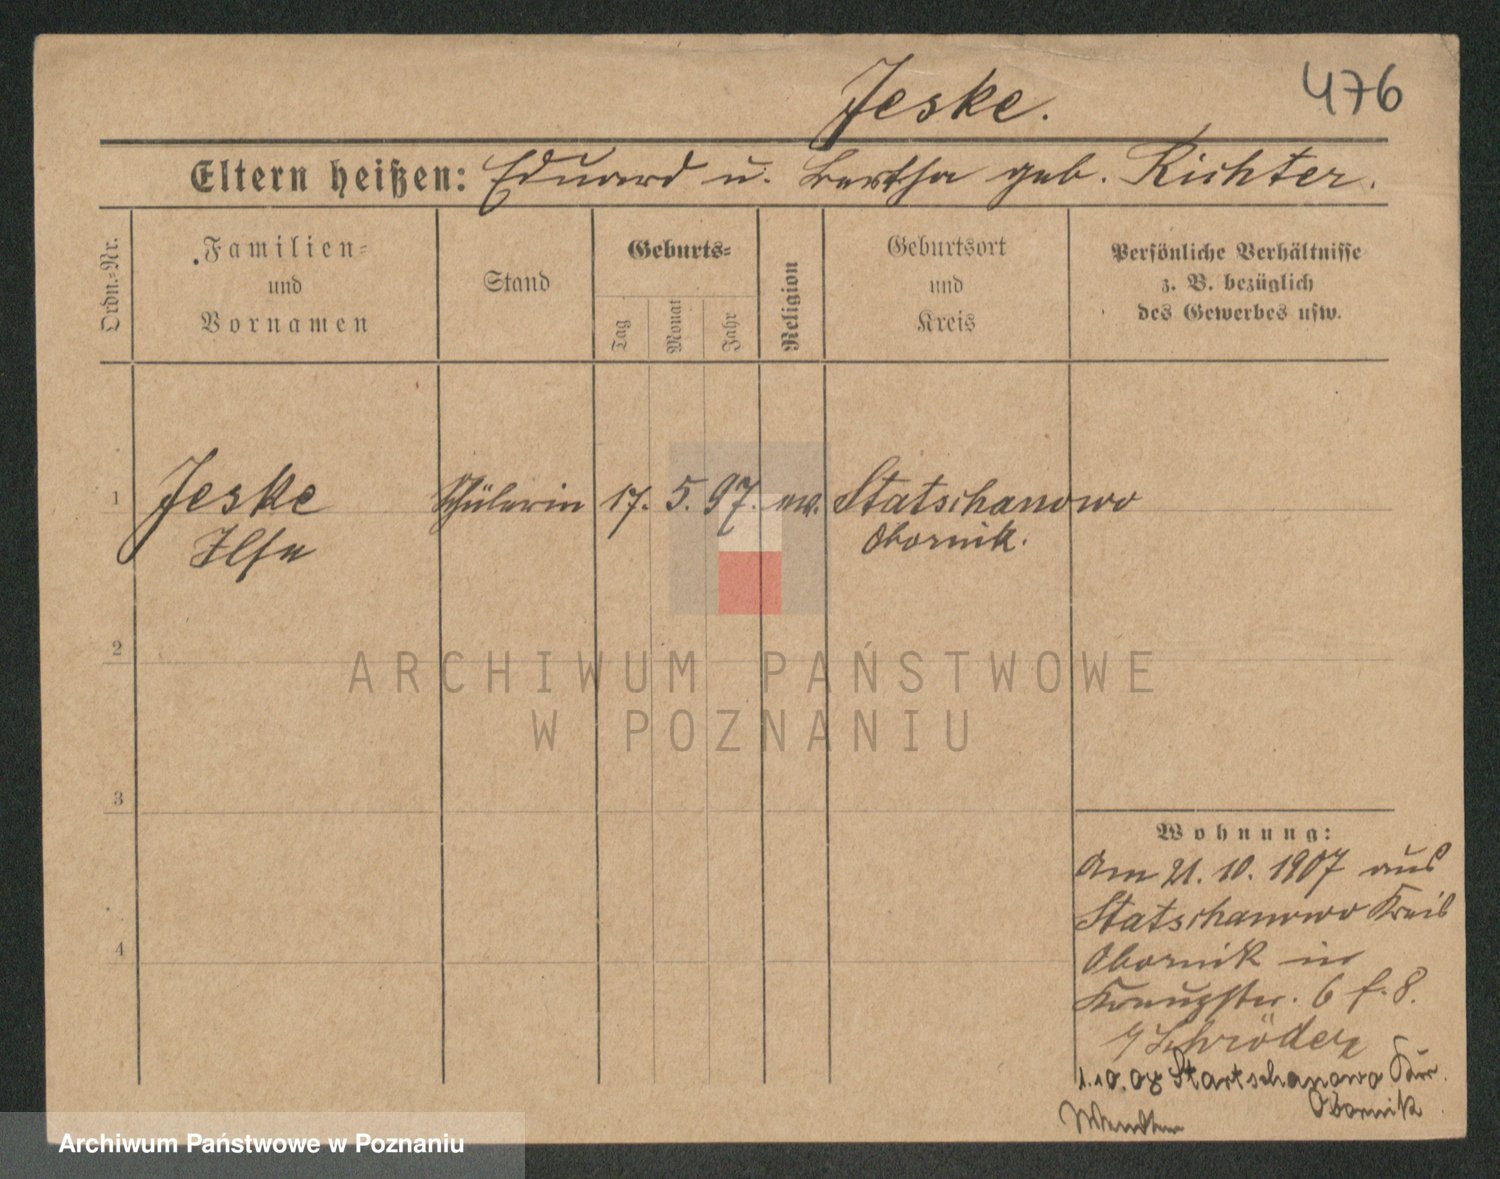 Jeske.
476
Eltern heißen: Eduard u. Bertha geb. Richter.
Ordn.-Nr.
Familien-
und
Vornamen
Stand
Geburts-
Tag
Monat
Jahr
Religion
Geburtsort
und
Kreis
Persönliche Verhältnisse
z. B. bezüglich
des Gewerbes usw.
1 Jeske Schülerin 17. 5. 97. ev. Statschanowo
Ilse Obornik.
2
3
4
ARCHIWUM PAŃSTWOWE
W POZNANIU
Wohnung:
Am 21. 10. 1907 aus
Statschanowo Kreis
Obornik in
Kreuzstr. 6 b. 8.
Schröder
1.10.08 Startschanowo
Obornik
Archiwum Państwowe w Poznaniu